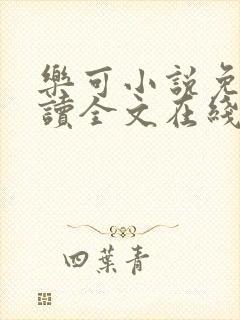 樂可小說免
讀全文在綫
四葉青